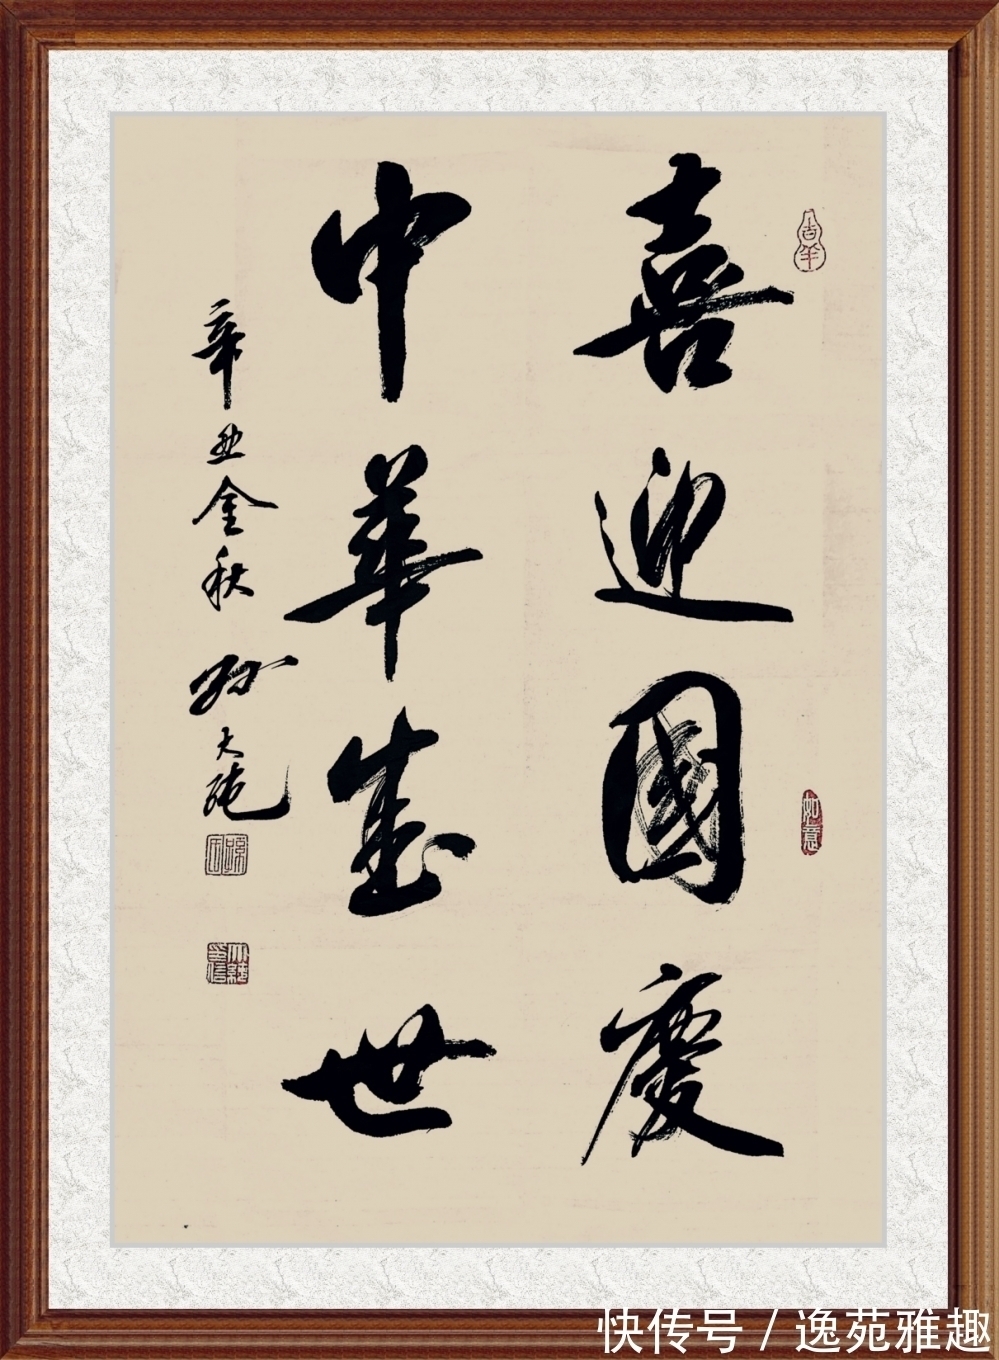 喜迎國慶
中華盛世
辛丑金秋 孙大纯
吉羊
如意
快传号 / 逸苑雅趣